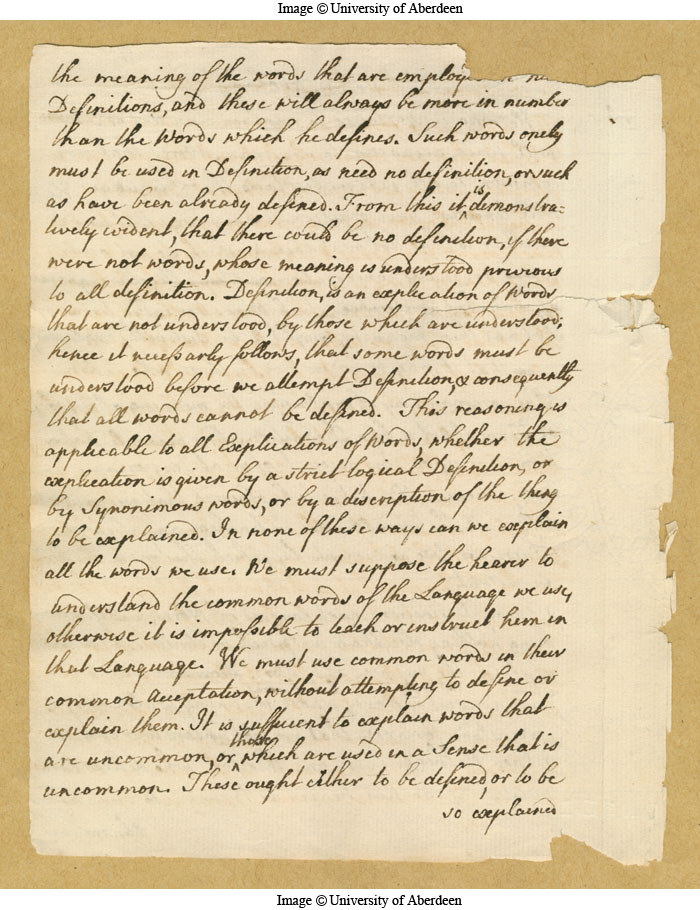 Image © University of Aberdeen
the meaning of the words that are employed
Definitions, and these will always be more in number
than the Words which he defines. Such words onely
must be used in Definition, as need no definition, or such
as have been already defined. From this it is demonstra=
tively evident, that there could be no definition, if there
were not words, whose meaning is understood previous
to all definition. Definition, is an explication of Words
that are not understood, by those which are understood;
hence it necessarly follows, that some words must be
understood before we attempt Definition, & consequently
that all words cannot be defined. This reasoning is
applicable to all Explications of Words, whether the
explication is given by a strict logical Definition, or
by Synonimous words, or by a discription of the thing
to be explained. In none of these ways can we explain
all the words we use. We must suppose the hearer to
understand the common words of the Language we use,
otherwise it is impossible to teach or instruct him in
that Language. We must use common words in their
common Acceptation, without attempting to define or
explain them. It is sufficient to explain words that
are uncommon, or those which are used in a Sense that is
uncommon. These ought either to be defined, or to be
so explained
Image © University of Aberdeen